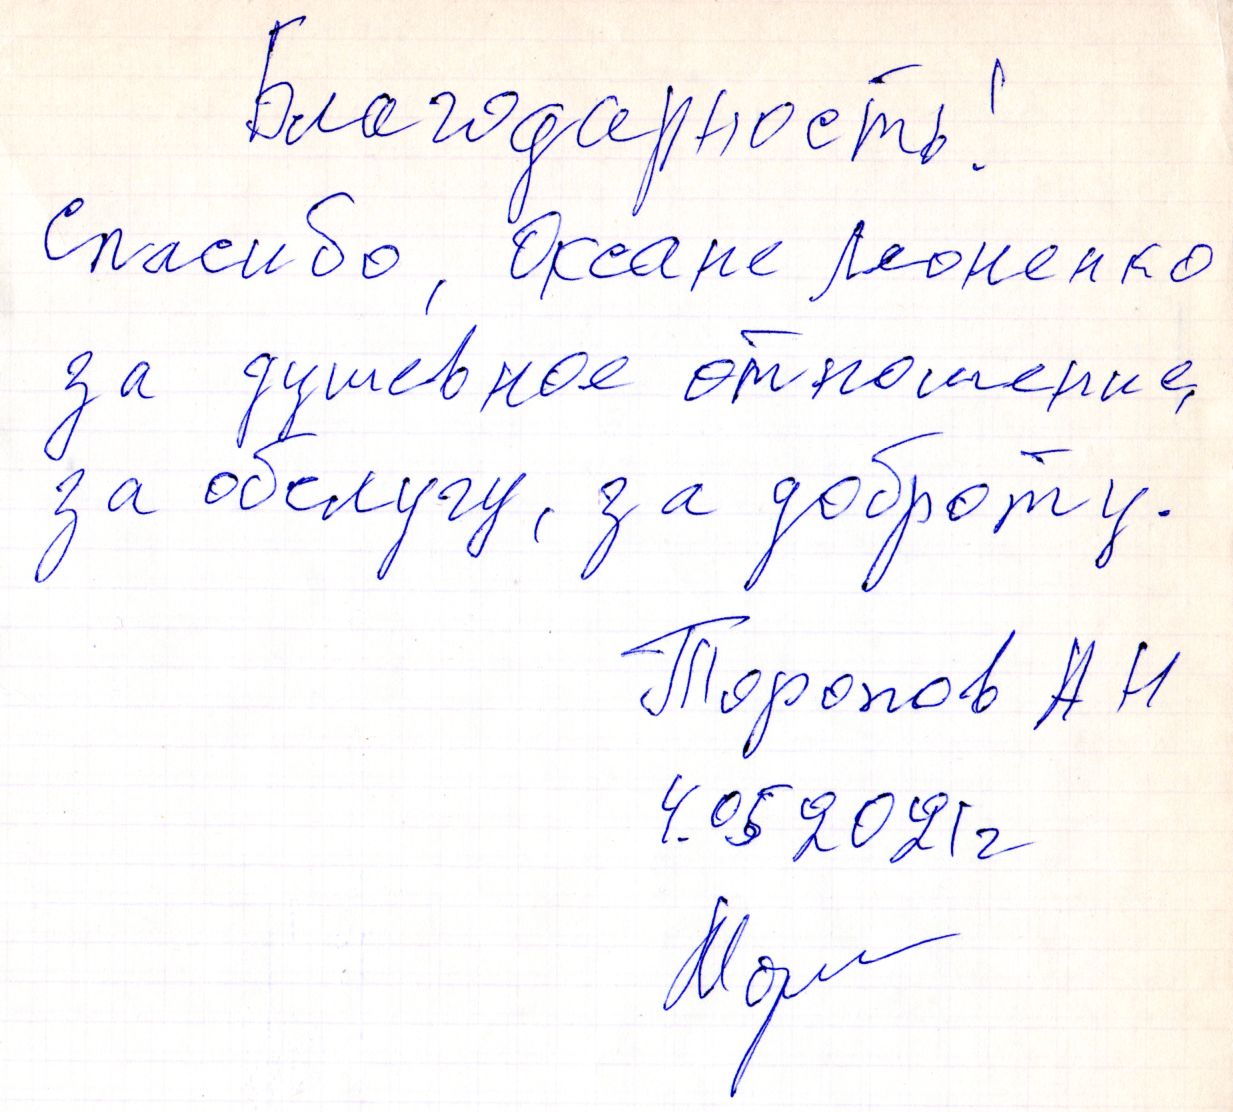 Благодарность!
Спасибо, Оксане Леоненко
за душевное отношение,
за обслугу, за доброту.
Торопов А Н
4.05 2021г